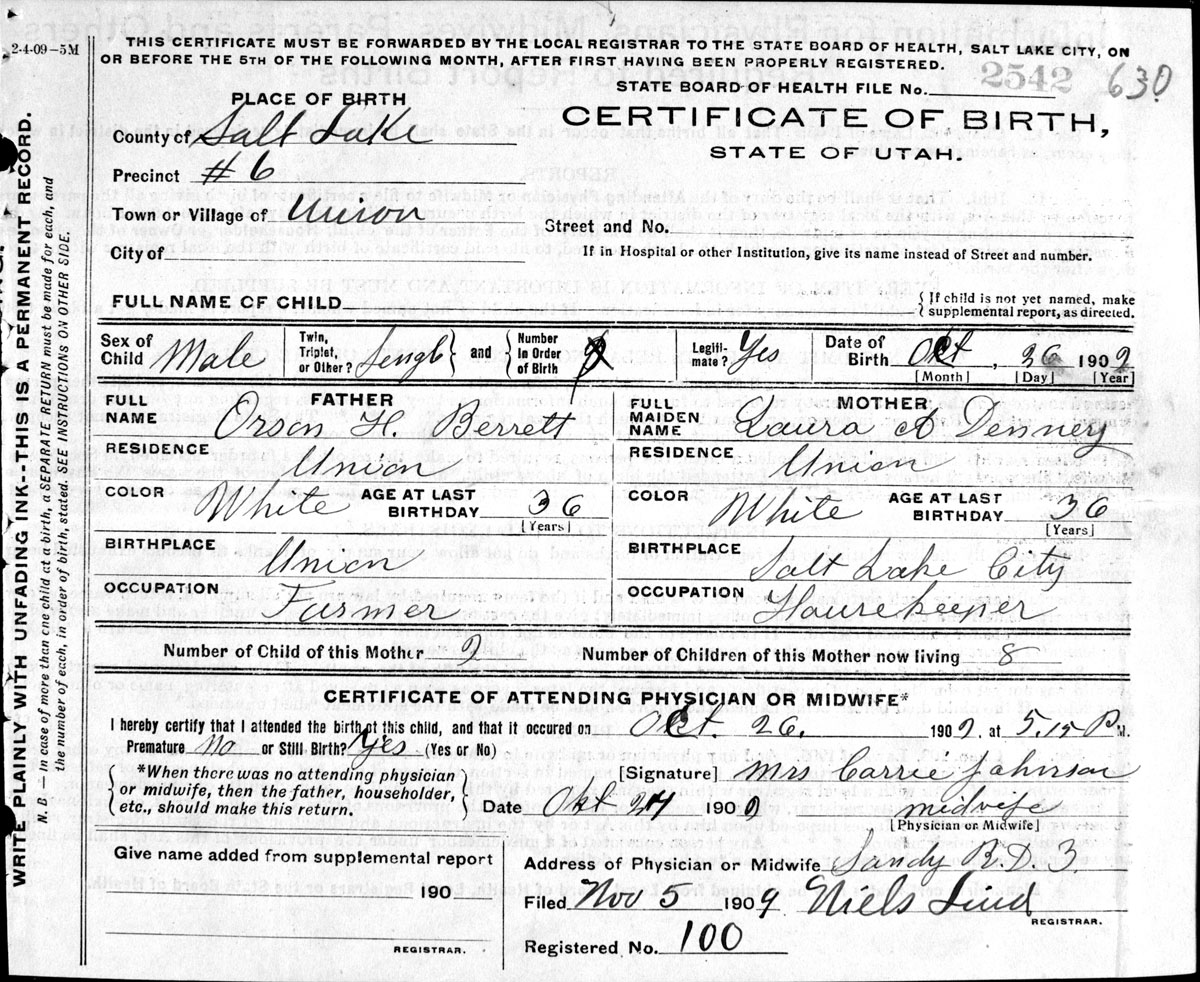 2-4-09-5M
THIS CERTIFICATE MUST BE FORWARDED BY THE LOCAL REGISTRAR TO THE STATE BOARD OF HEALTH, SALT LAKE CITY, ON
OR BEFORE THE 5TH OF THE FOLLOWING MONTH, AFTER FIRST HAVING BEEN PROPERLY REGISTERED.
STATE BOARD OF HEALTH FILE No. 2542 630
WRITE PLAINLY WITH UNFADING INK--THIS IS A PERMANENT RECORD.
N. B. — In case of more than one child at a birth, a SEPARATE RETURN must be made for each, and
the number of each, in order of birth, stated. SEE INSTRUCTIONS ON OTHER SIDE.
PLACE OF BIRTH
CERTIFICATE OF BIRTH,
STATE OF UTAH.
County of Salt Lake
Precinct #6
Town or Village of Union
Street and No.
City of
If in Hospital or other Institution, give its name instead of Street and number.
FULL NAME OF CHILD
{If child is not yet named, make
supplemental report, as directed.
Sex of Child Male Twin, Triplet, or Other? } and { Number in Order of Birth Legitimate? Yes Date of Birth Okt, 26 1909
[Month] [Day] [Year]
FATHER
FULL NAME Orson H. Berrett
RESIDENCE Union
COLOR White AGE AT LAST BIRTHDAY 36 [Years]
BIRTHPLACE Union
OCCUPATION Farmer
MOTHER
FULL MAIDEN NAME Laura A Denney
RESIDENCE Union
COLOR White AGE AT LAST BIRTHDAY 36 [Years]
BIRTHPLACE Salt Lake City
OCCUPATION Housekeeper
Number of Child of this Mother 9 Number of Children of this Mother now living 8
CERTIFICATE OF ATTENDING PHYSICIAN OR MIDWIFE*
I hereby certify that I attended the birth of this child, and that it occured on Oct. 26. 1909, at 5.15 P. M.
Premature No or Still Birth? Yes (Yes or No)
{*When there was no attending physician
or midwife, then the father, householder,
etc., should make this return.}
[Signature] Mrs Carrie Johnson
Date Okt 27 1909 midwife
[Physician or Midwife]
Give name added from supplemental report
190
REGISTRAR.
Address of Physician or Midwife Sandy R.D.3.
Filed Nov 5 1909 Niels Lind
REGISTRAR.
Registered No. 100